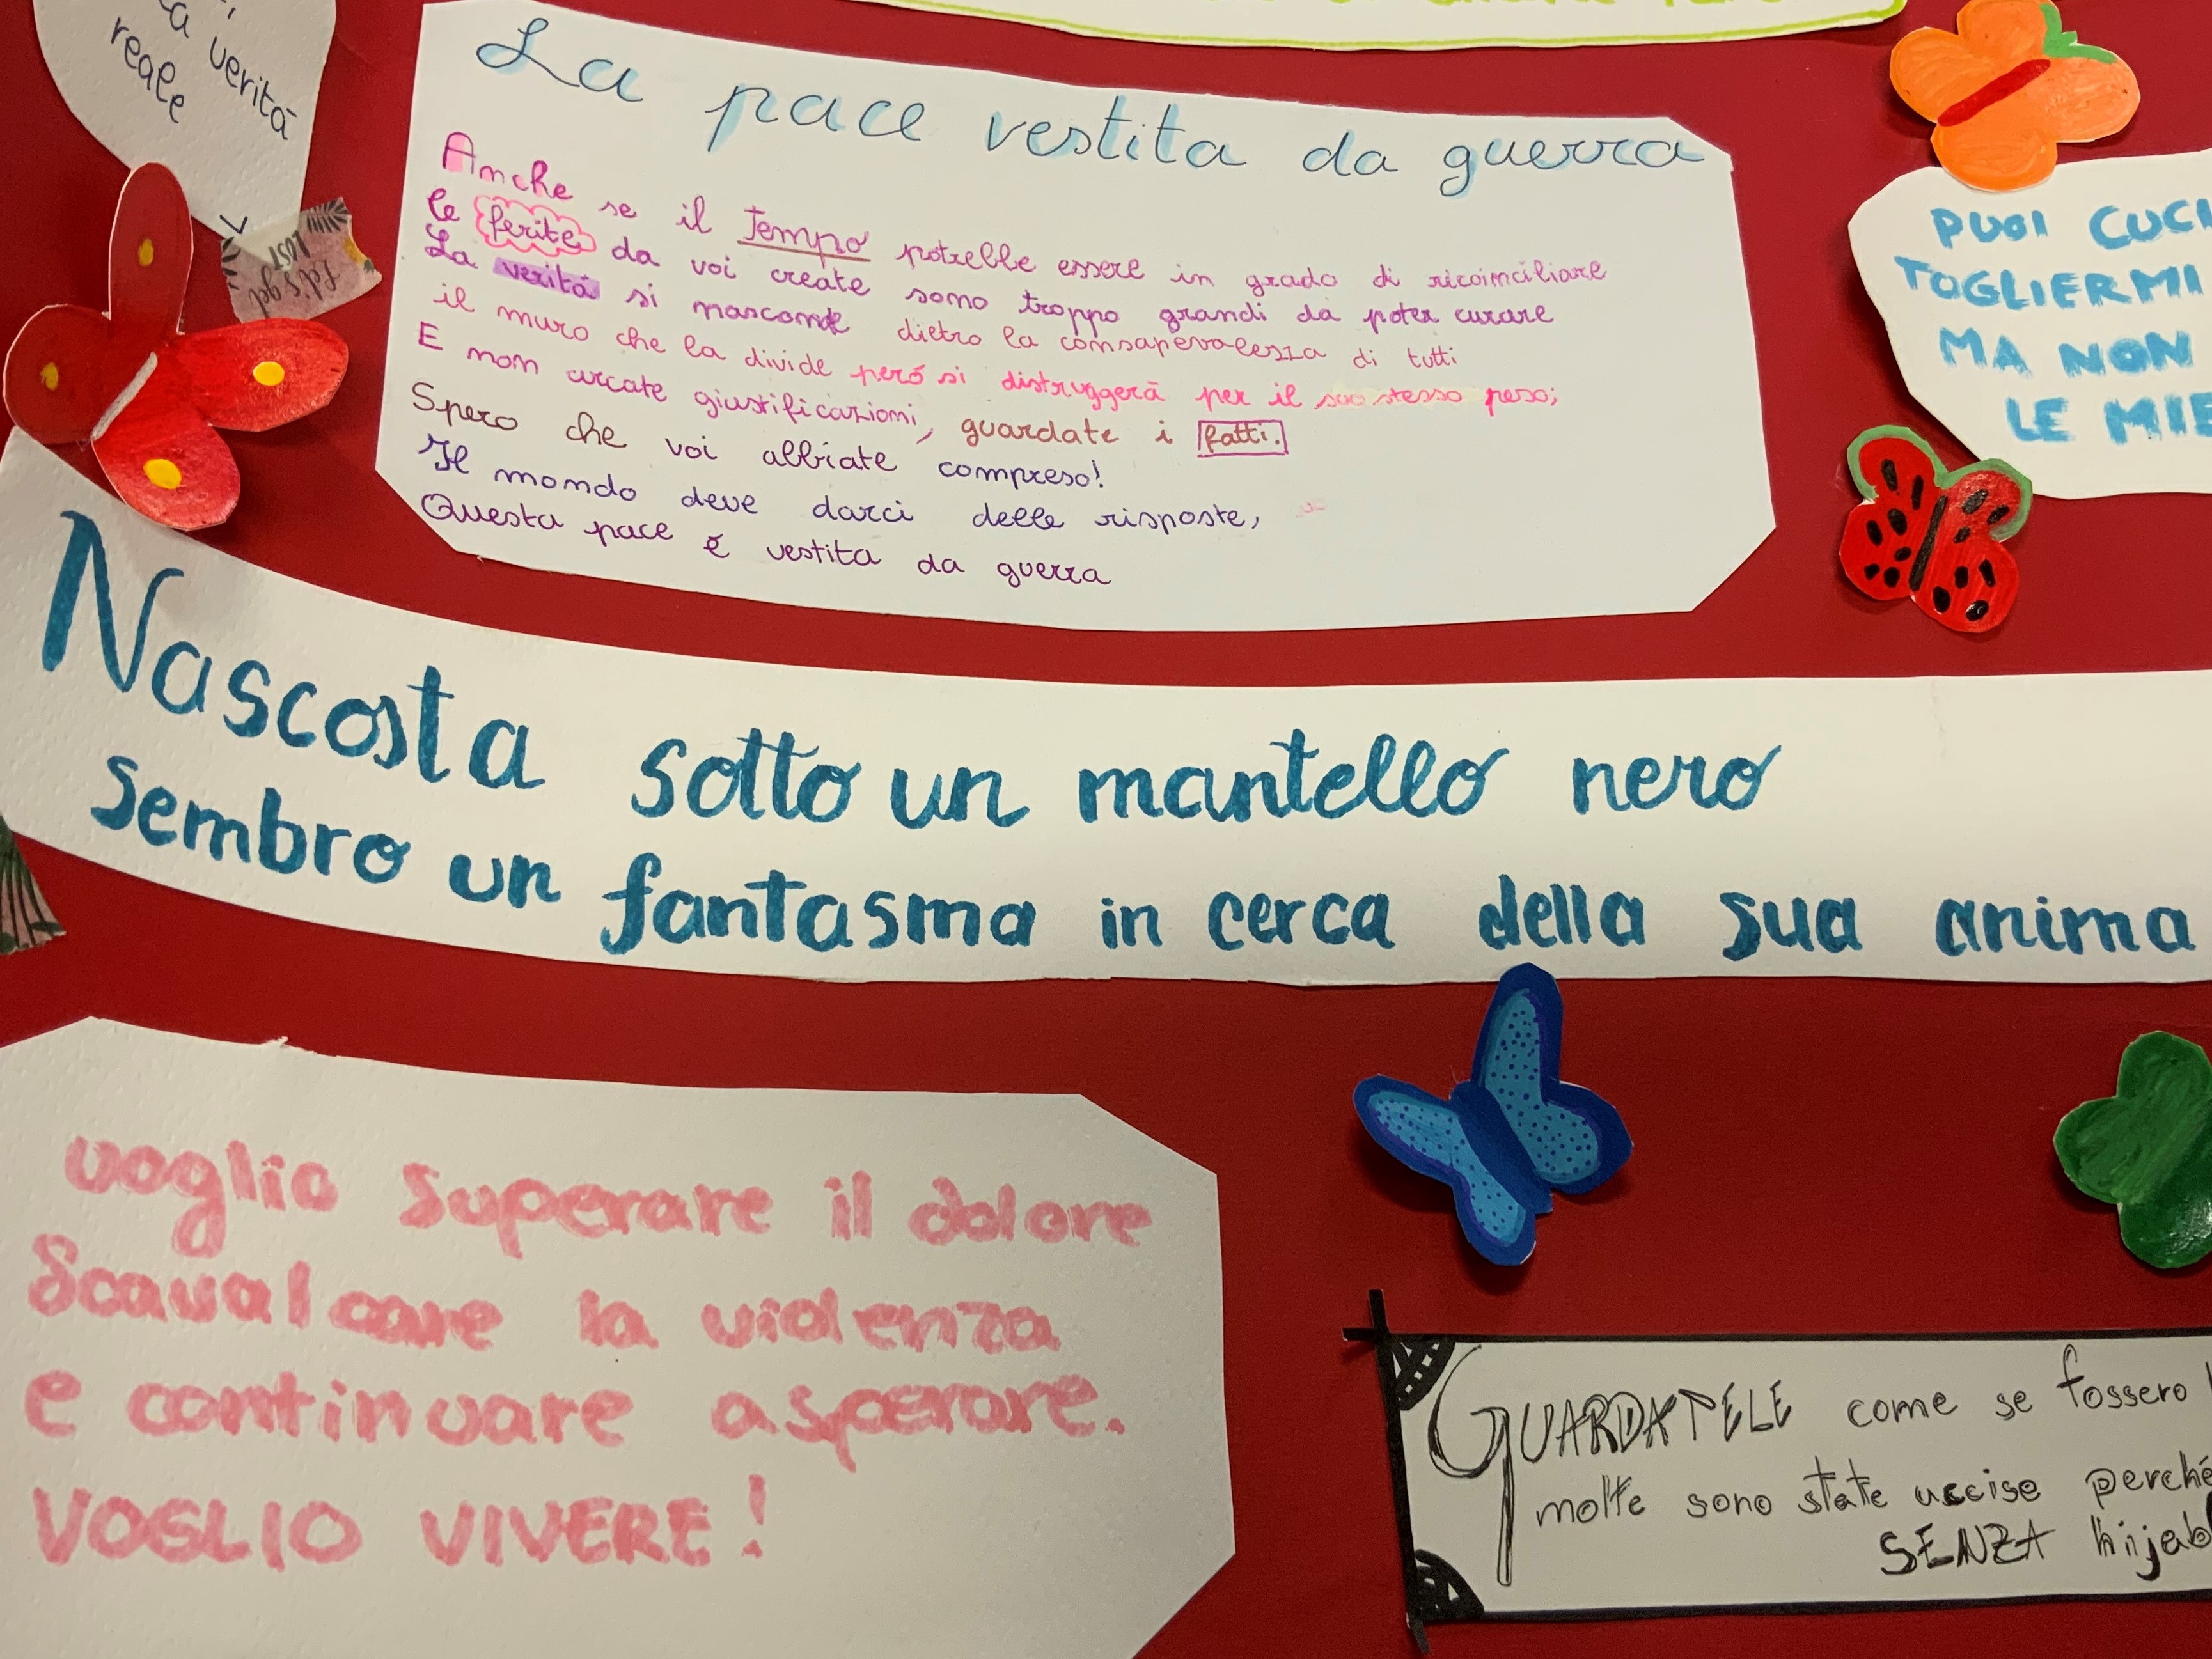 a verità
reale
Let's get
LOST
La pace vestita da guerra
Anche se il tempo potrebbe essere in grado di riconciliare
le ferite da voi create sono troppo grandi da poter curare
La verità si nasconde dietro la consapevolezza di tutti
il muro che la divide però si distruggerà per il suo stesso peso;
E non cercate giustificazioni, guardate i fatti.
Spero che voi abbiate compreso!
Il mondo deve darci delle risposte,
Questa pace è vestita da guerra
PUOI CUCI
TOGLIERMI
MA NON
LE MIE
Nascosta sotto un mantello nero
sembro un fantasma in cerca della sua anima
voglio superare il dolore
Scavalcare la violenza
e continuare a sperare.
VOGLIO VIVERE!
GUARDATELE come se fossero
molte sono state uccise perché
SENZA hijab